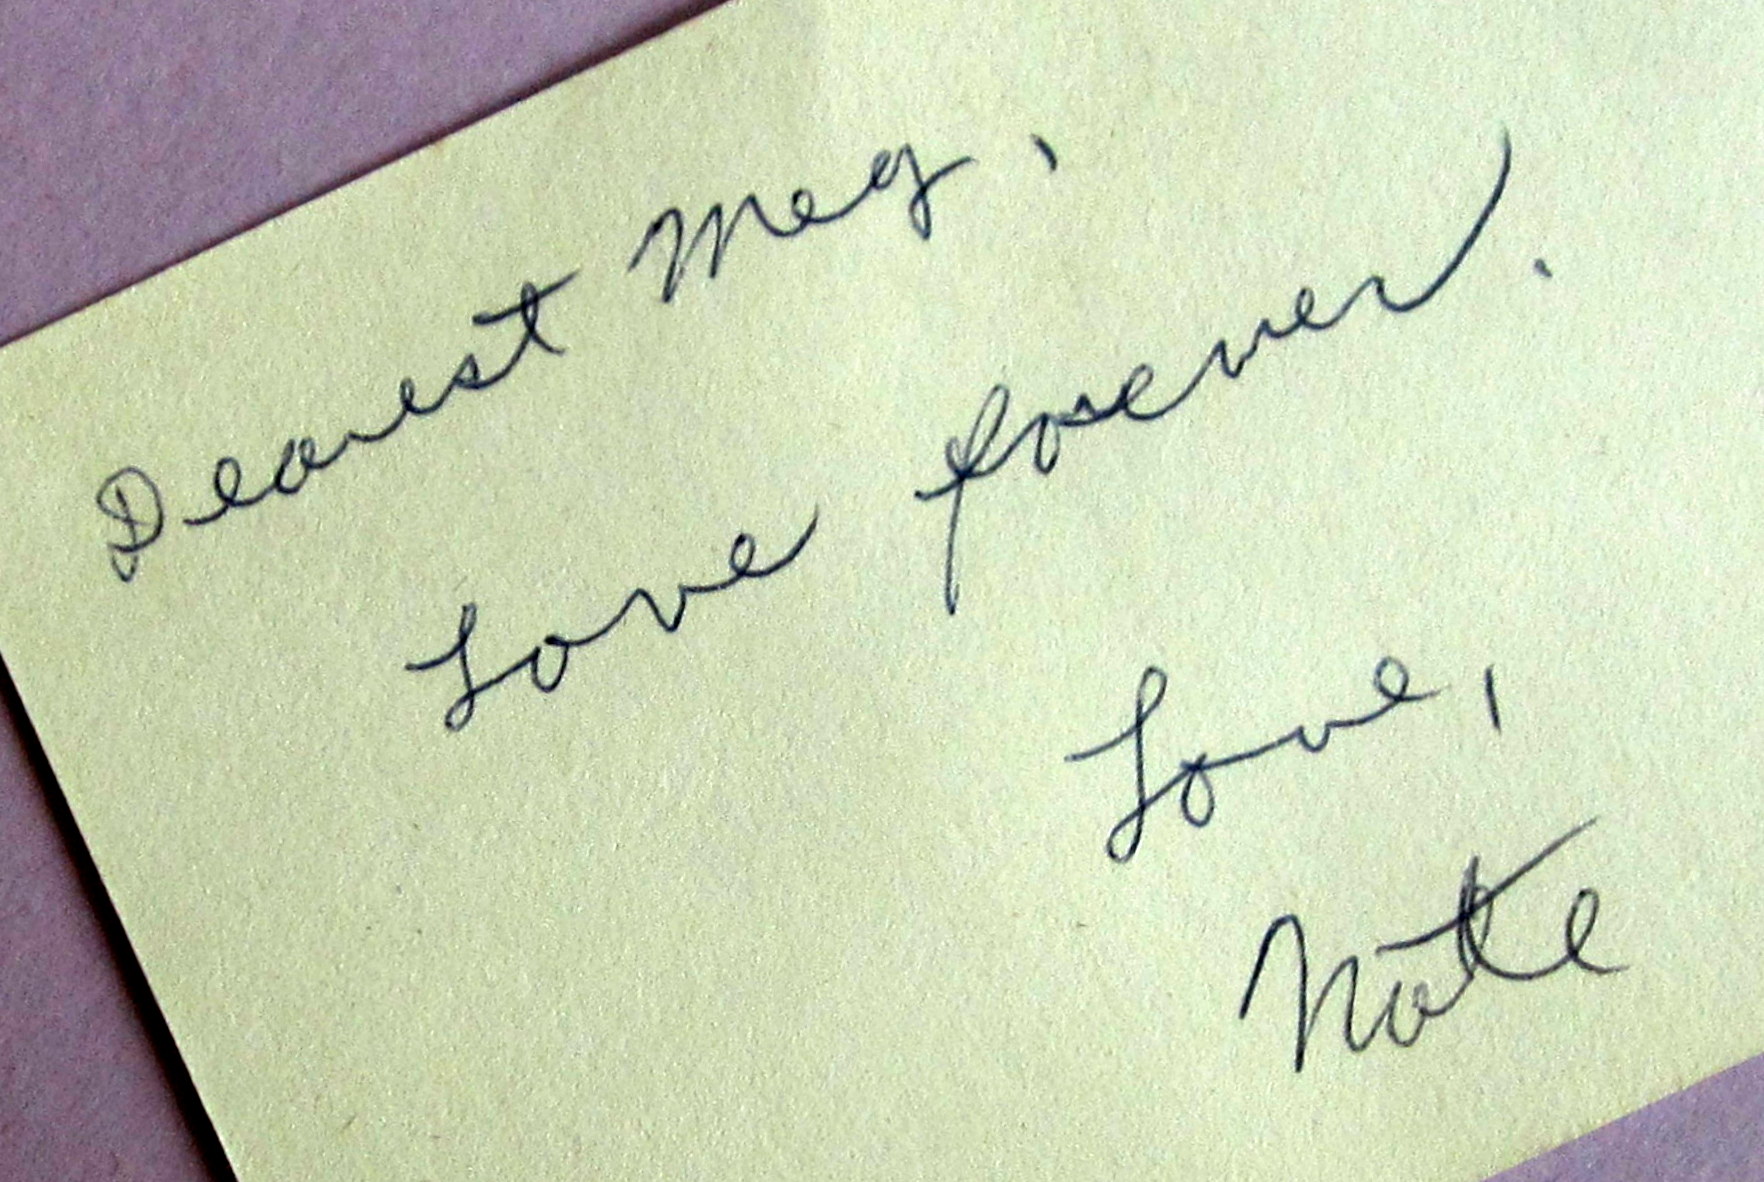 Dearest Meg,
Love forever.
Love,
Nate